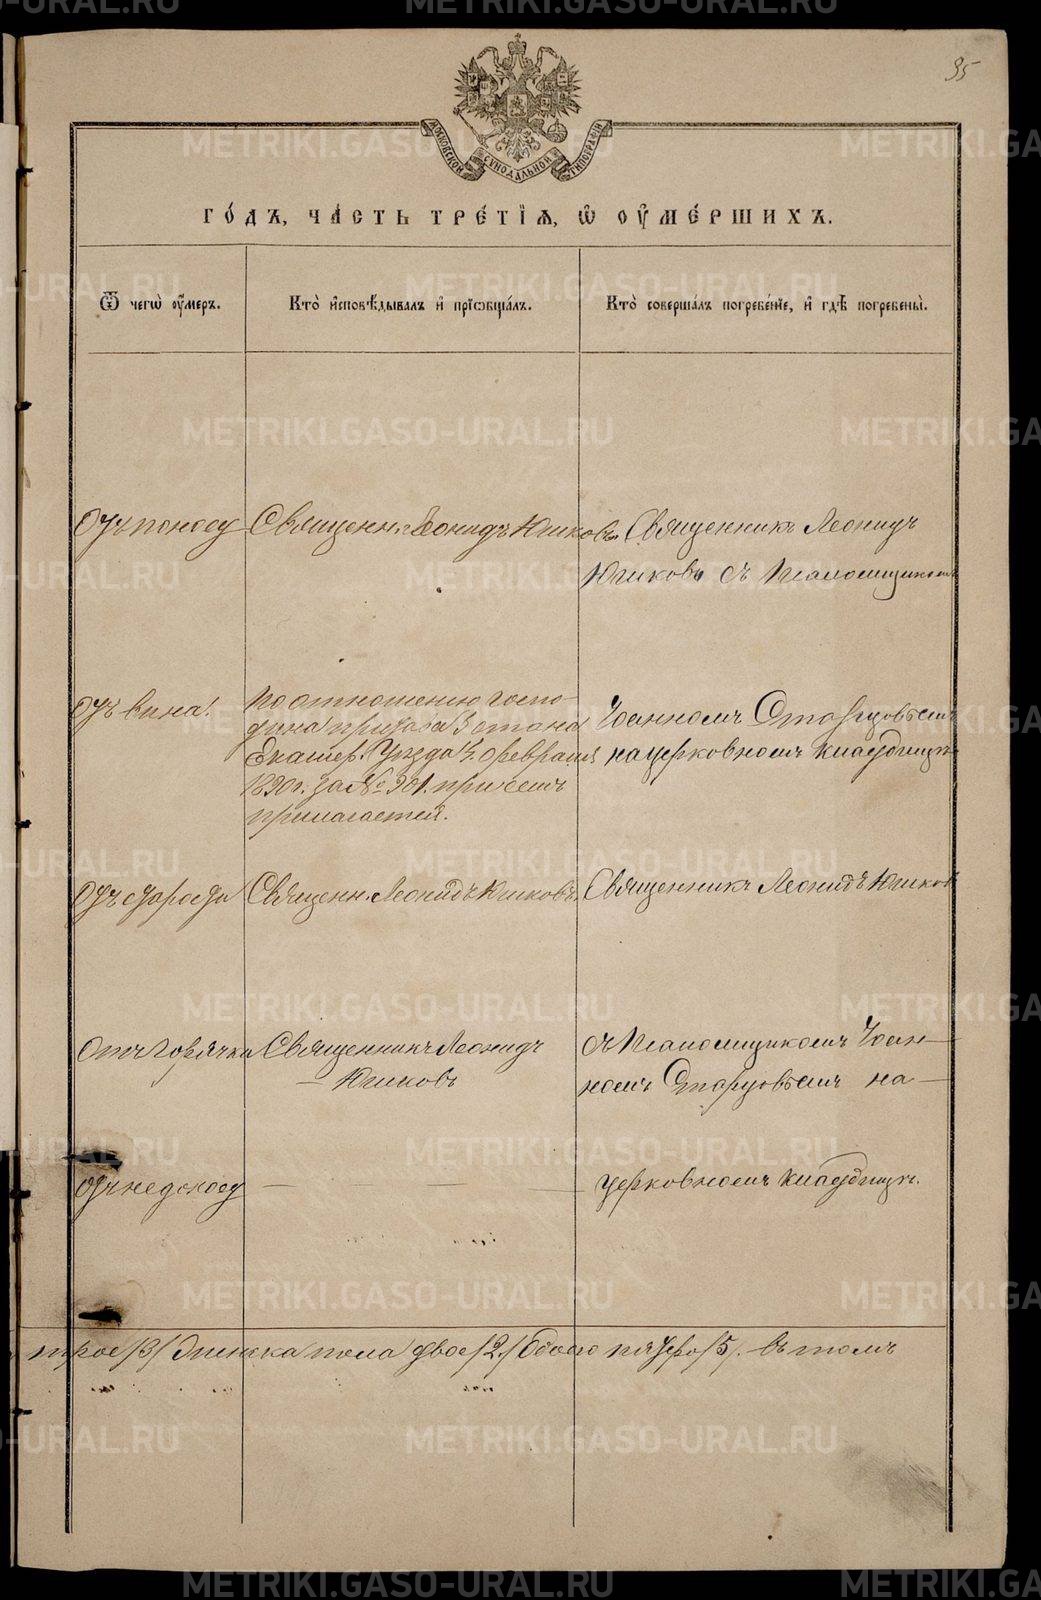 95
МОСКОВСКОЙ СѴНОДАЛЬНОЙ ТИПОГРАФІИ
ГО́ДЪ, ЧА́СТЬ ТРЕ́ТІѦ, Ѡ҆ ОУ҆МЕ́РШИХЪ.
Ѿ чегѡ̀ оу҆́меръ.
Кто̀ и҆сповѣ́дывалъ и҆ прїѡбща́лъ.
Кто̀ соверша́лъ погребе́нїе, и҆ гдѣ̀ погребены̀.
Отъ поносу
Священн. Леонидъ Юшковъ
Священникъ Леонидъ
Юшковъ съ Псаломщикомъ
Отъ вина.
По отношенію госпо-
дина пристава 3 стана
Екатер. Уѣзда 4. Февраля
1890 г. за № 901. при семъ
прилагается.
Іоанномъ Старцовымъ
на церковномъ кладбищѣ
Отъ старости
Священн. Леонидъ Юшковъ.
Священникъ Леонидъ Юшков
Отъ горячки
Священникъ Леонидъ
Юшковъ
съ Псаломщикомъ Іоан-
номъ Старцовымъ на
Отъ недоносу
церковномъ кладбищѣ.
трое /3/ Женска пола двое /2/ Обоего пятеро /5/. въ томъ
METRIKI.GASO-URAL.RU